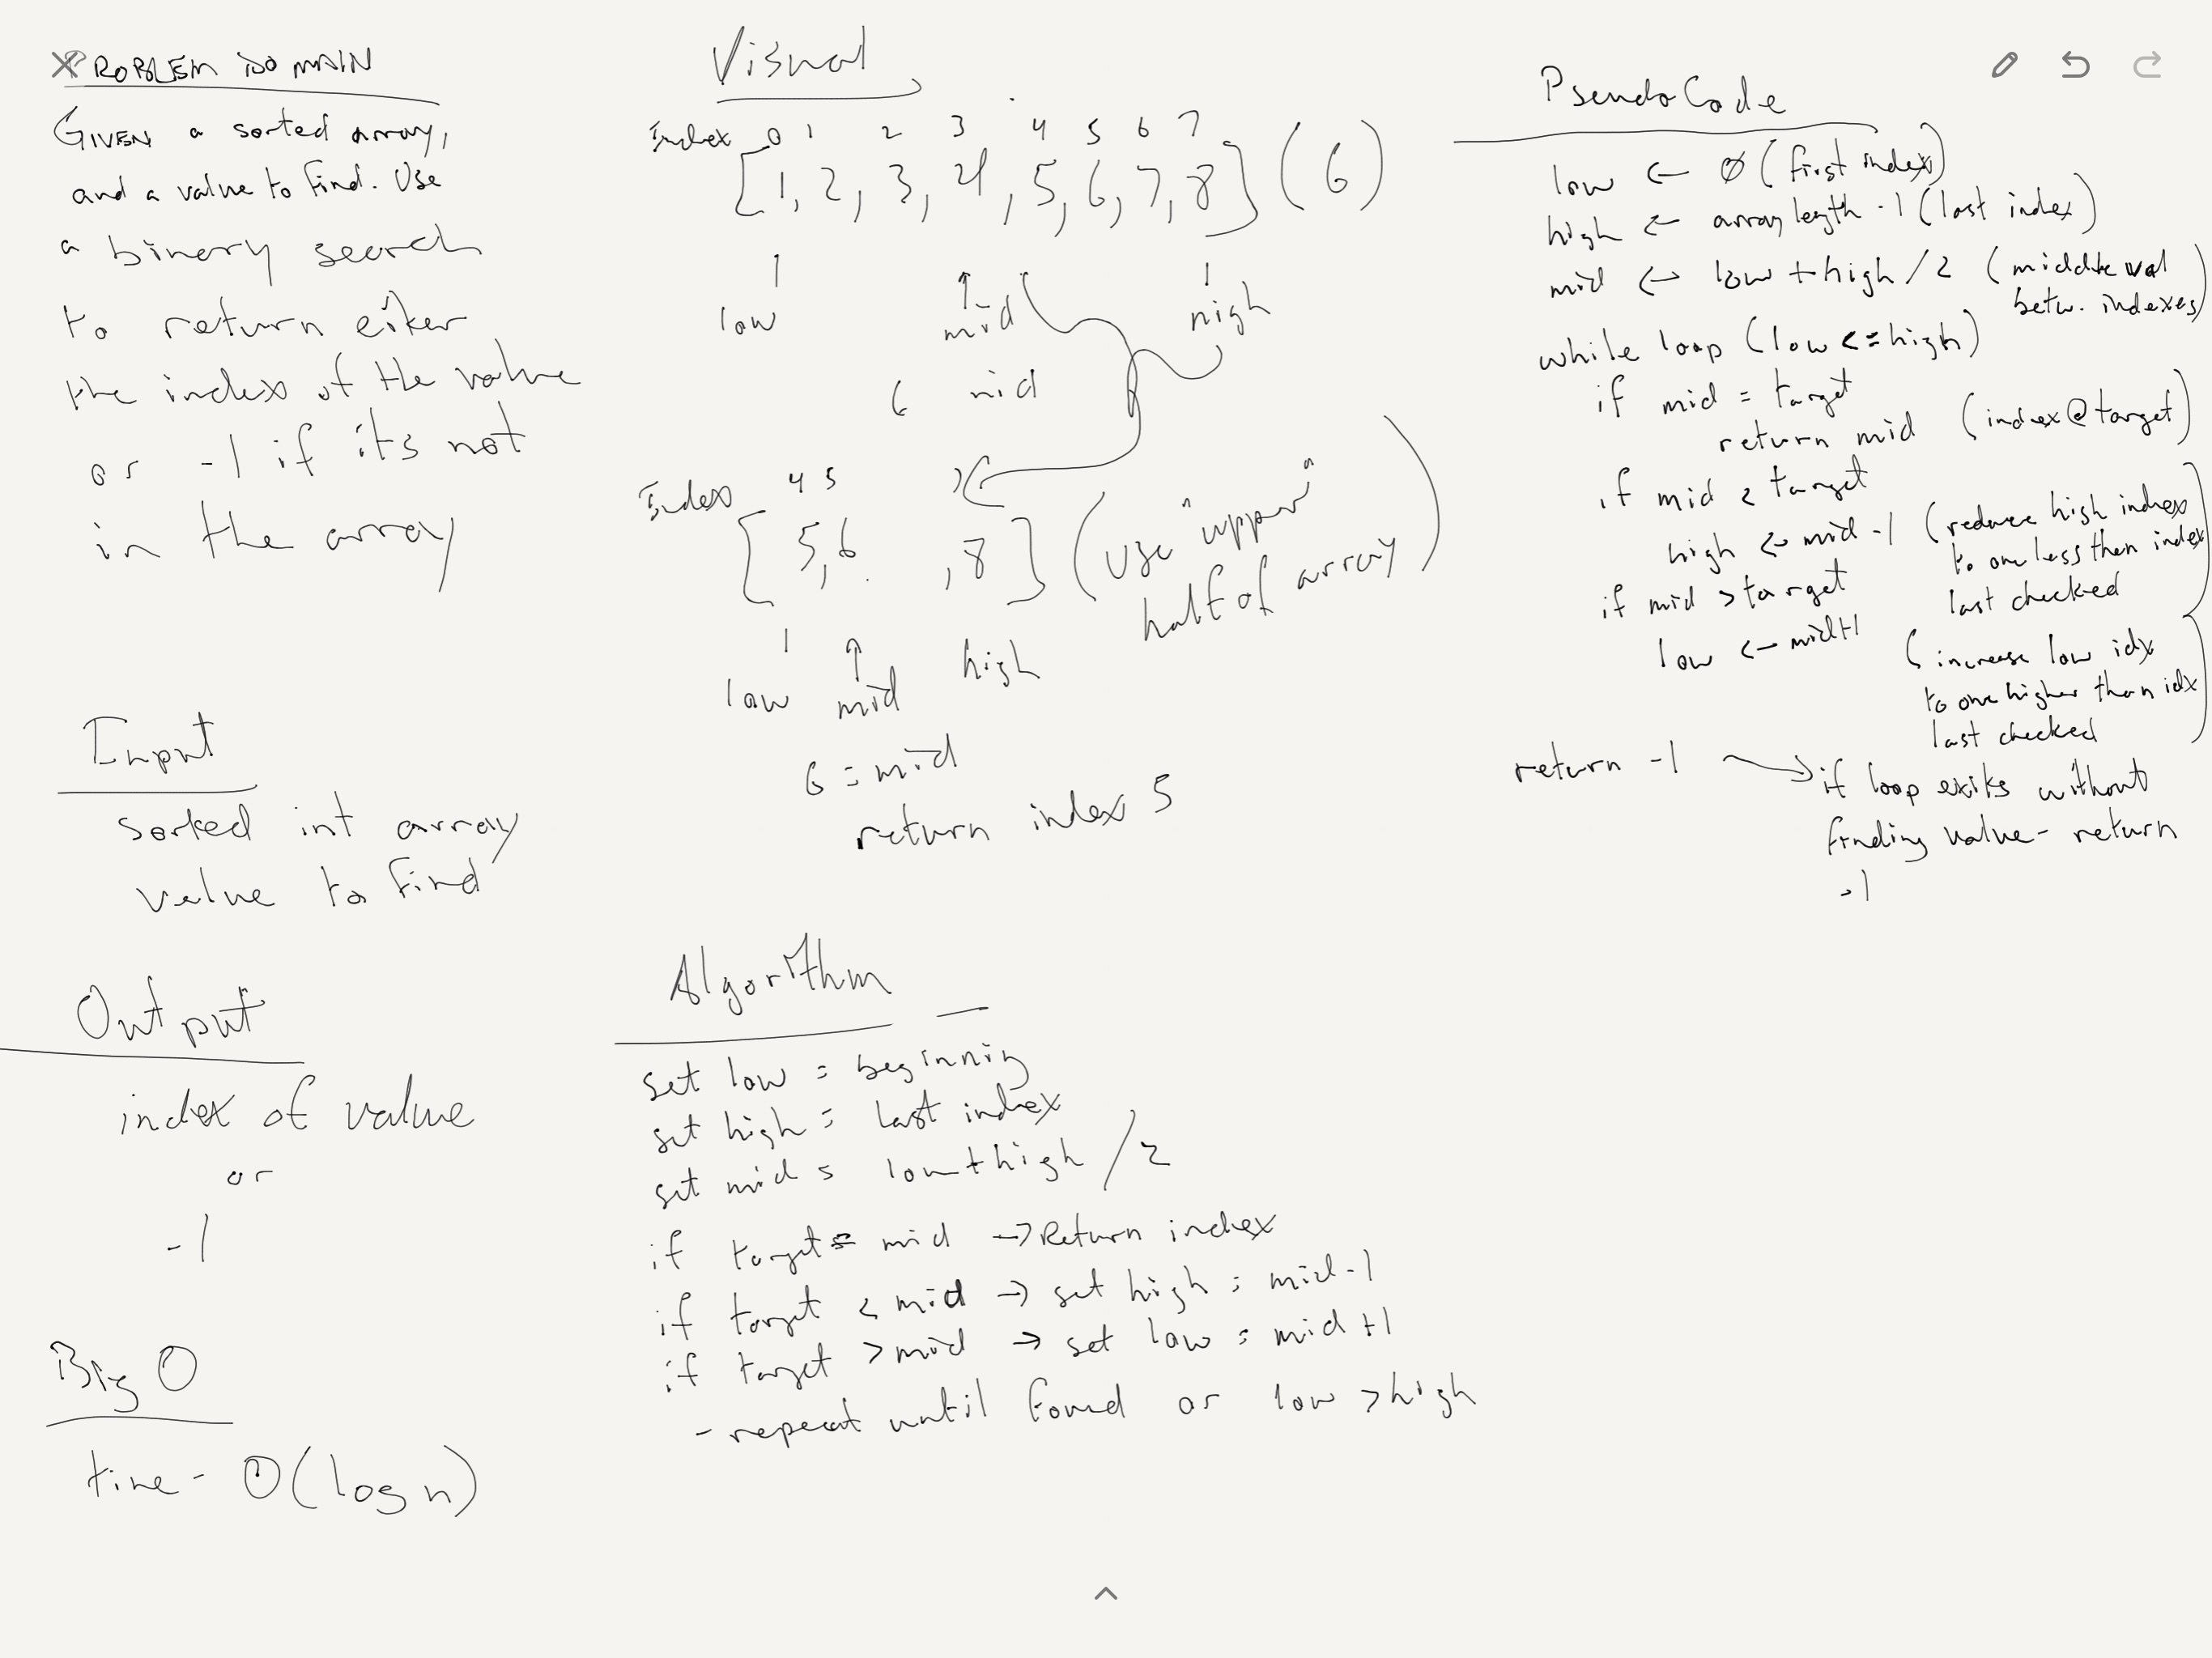 PROBLEM DOMAIN
GIVEN a sorted array,
and a value to find. Use
a binary search
to return either
the index of the value
or -1 if its not
in the array
Input
sorted int array
value to find
Output
index of value
or
-1
Big O
time - O(log n)
Visual
Index 0 1 2 3 4 5 6 7
[1, 2, 3, 4, 5, 6, 7, 8] (6)
low mid high
6 mid
Index 4 5
[5, 6 , 8] (use "upper"
half of array)
low mid high
6 = mid
return index 5
Algorithm
set low = beginning
set high = last index
set mid = low + high / 2
if target = mid → Return index
if target < mid → set high = mid - 1
if target > mid → set low = mid + 1
- repeat until found or low > high
PseudoCode
low ← 0 (first index)
high ← array length - 1 (last index)
mid ← low + high / 2 (middle val
betw. indexes)
while loop (low <= high)
if mid = target
return mid (index @ target)
if mid < target
high ← mid - 1 (reduce high index
to one less then index
last checked)
if mid > target
low ← mid + 1 (increase low idx
to one higher than idx
last checked)
return -1 → if loop exits without
finding value - return
-1